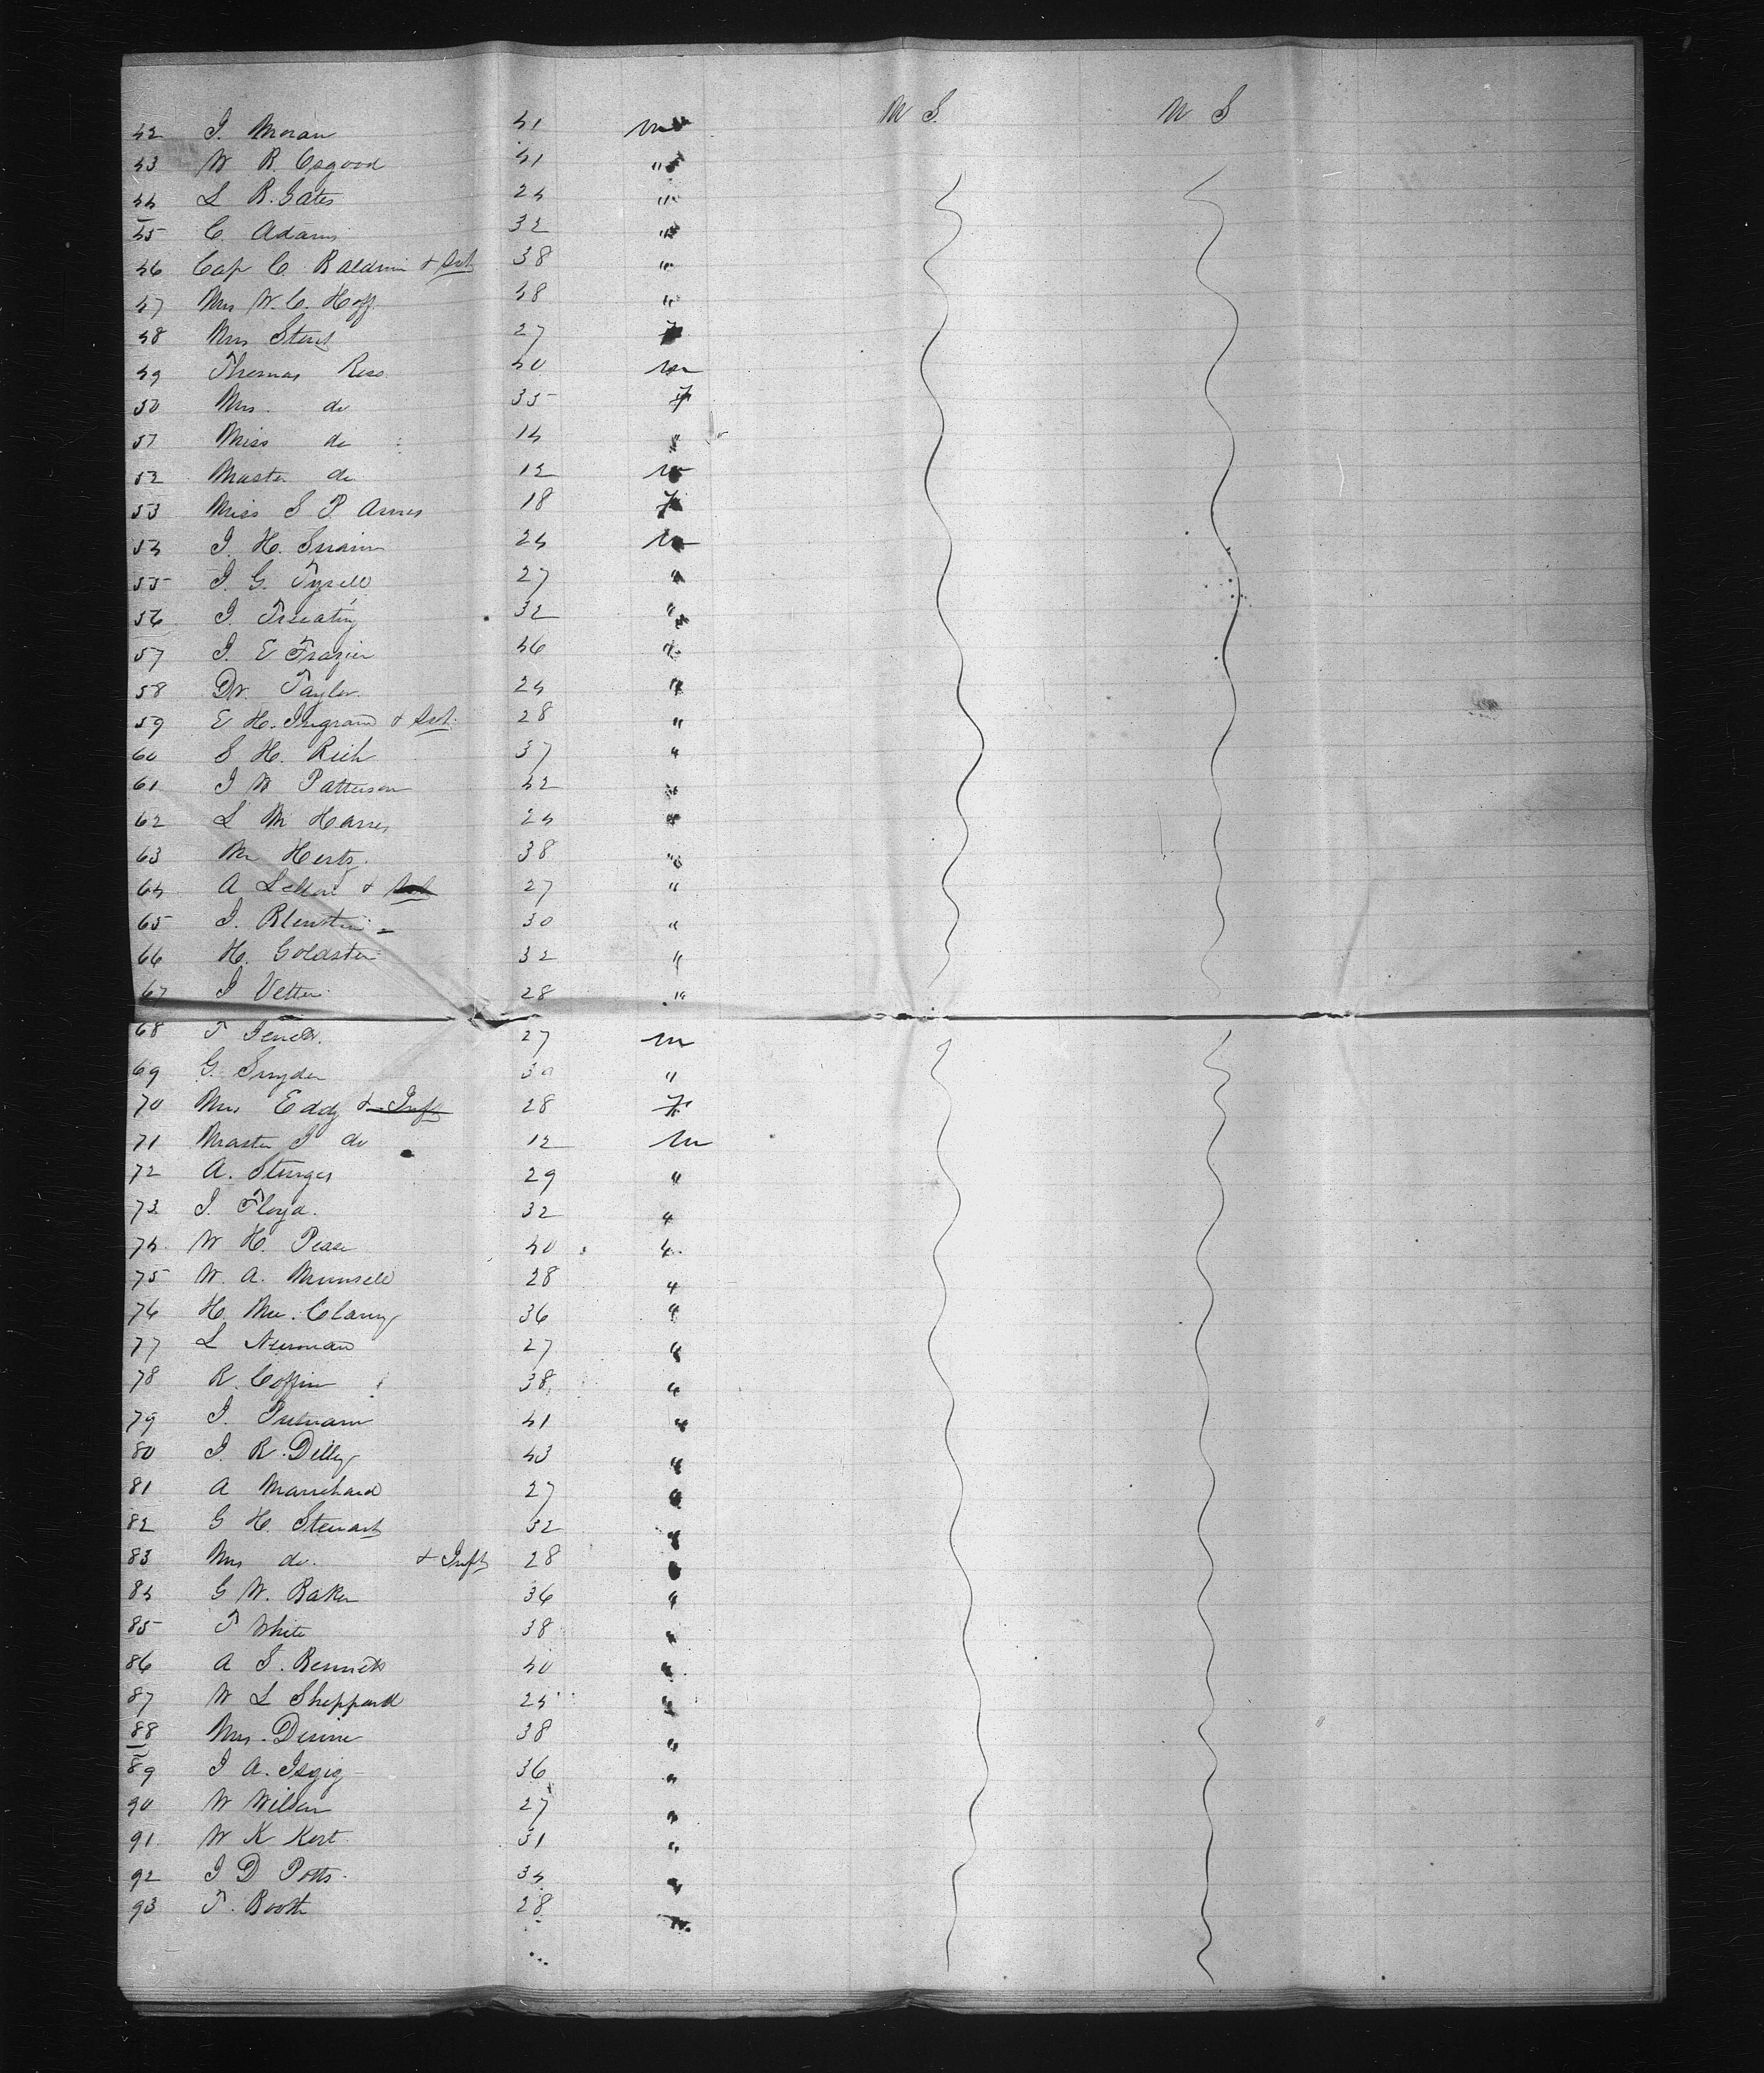 42 J. Moran 41 m U S. U S
43 W R. Osgood 41 "
44 L R. Gates 24 "
45 C. Adams 32 "
46 Cap C. Baldwin & 38 "
47 Mrs W. C. Hoff. 48 "
48 Mrs Stout 27 f
49 Thomas Ross 40 m
50 Mrs. do 35 f
51 Miss do 14 "
52 Master do 12 m
53 Miss S P. Ames 18 f
54 J. H. Swain 24 m
55 J. G. Tyrell 27 "
56 J. 32 "
57 J. E Frazier 46 "
58 Dr. Taylor 24 "
59 E H. Ingram & 28 "
60 S H. Rich 37 "
61 J W Patterson 42 "
62 L M Harris 24 "
63 Mr Hertz. 38 "
64 A & 27 "
65 J. 30 "
66 H. Goldstein 32 "
67 J Vetter 28 "
68 T 27 m
69 G. Snyder 30 "
70 Mrs Eddy & Inft 28 f
71 Master J do 12 m
72 A. Sturges 29 "
73 J. Floyd. 32 "
74 W H. Pease 40 "
75 W. A. Munsell 28 "
76 H. Mc. Clany 36 "
77 L Newman 27 "
78 R. Coffin 38 "
79 J. Putnam 41 "
80 J. R. Dilly 43 "
81 A Marrichard 27 "
82 G H. Stewart 32 "
83 Mrs do. & Inft 28
84 G W. Baker 36 "
85 T White 38 "
86 A S. Bennett 40 "
87 W L Sheppard 24 "
88 Mrs. 38 "
89 J A. 36 "
90 W Wilson 27 "
91 W K Kert 31 "
92 J D Potts. 34 "
93 T. Booth 28 "